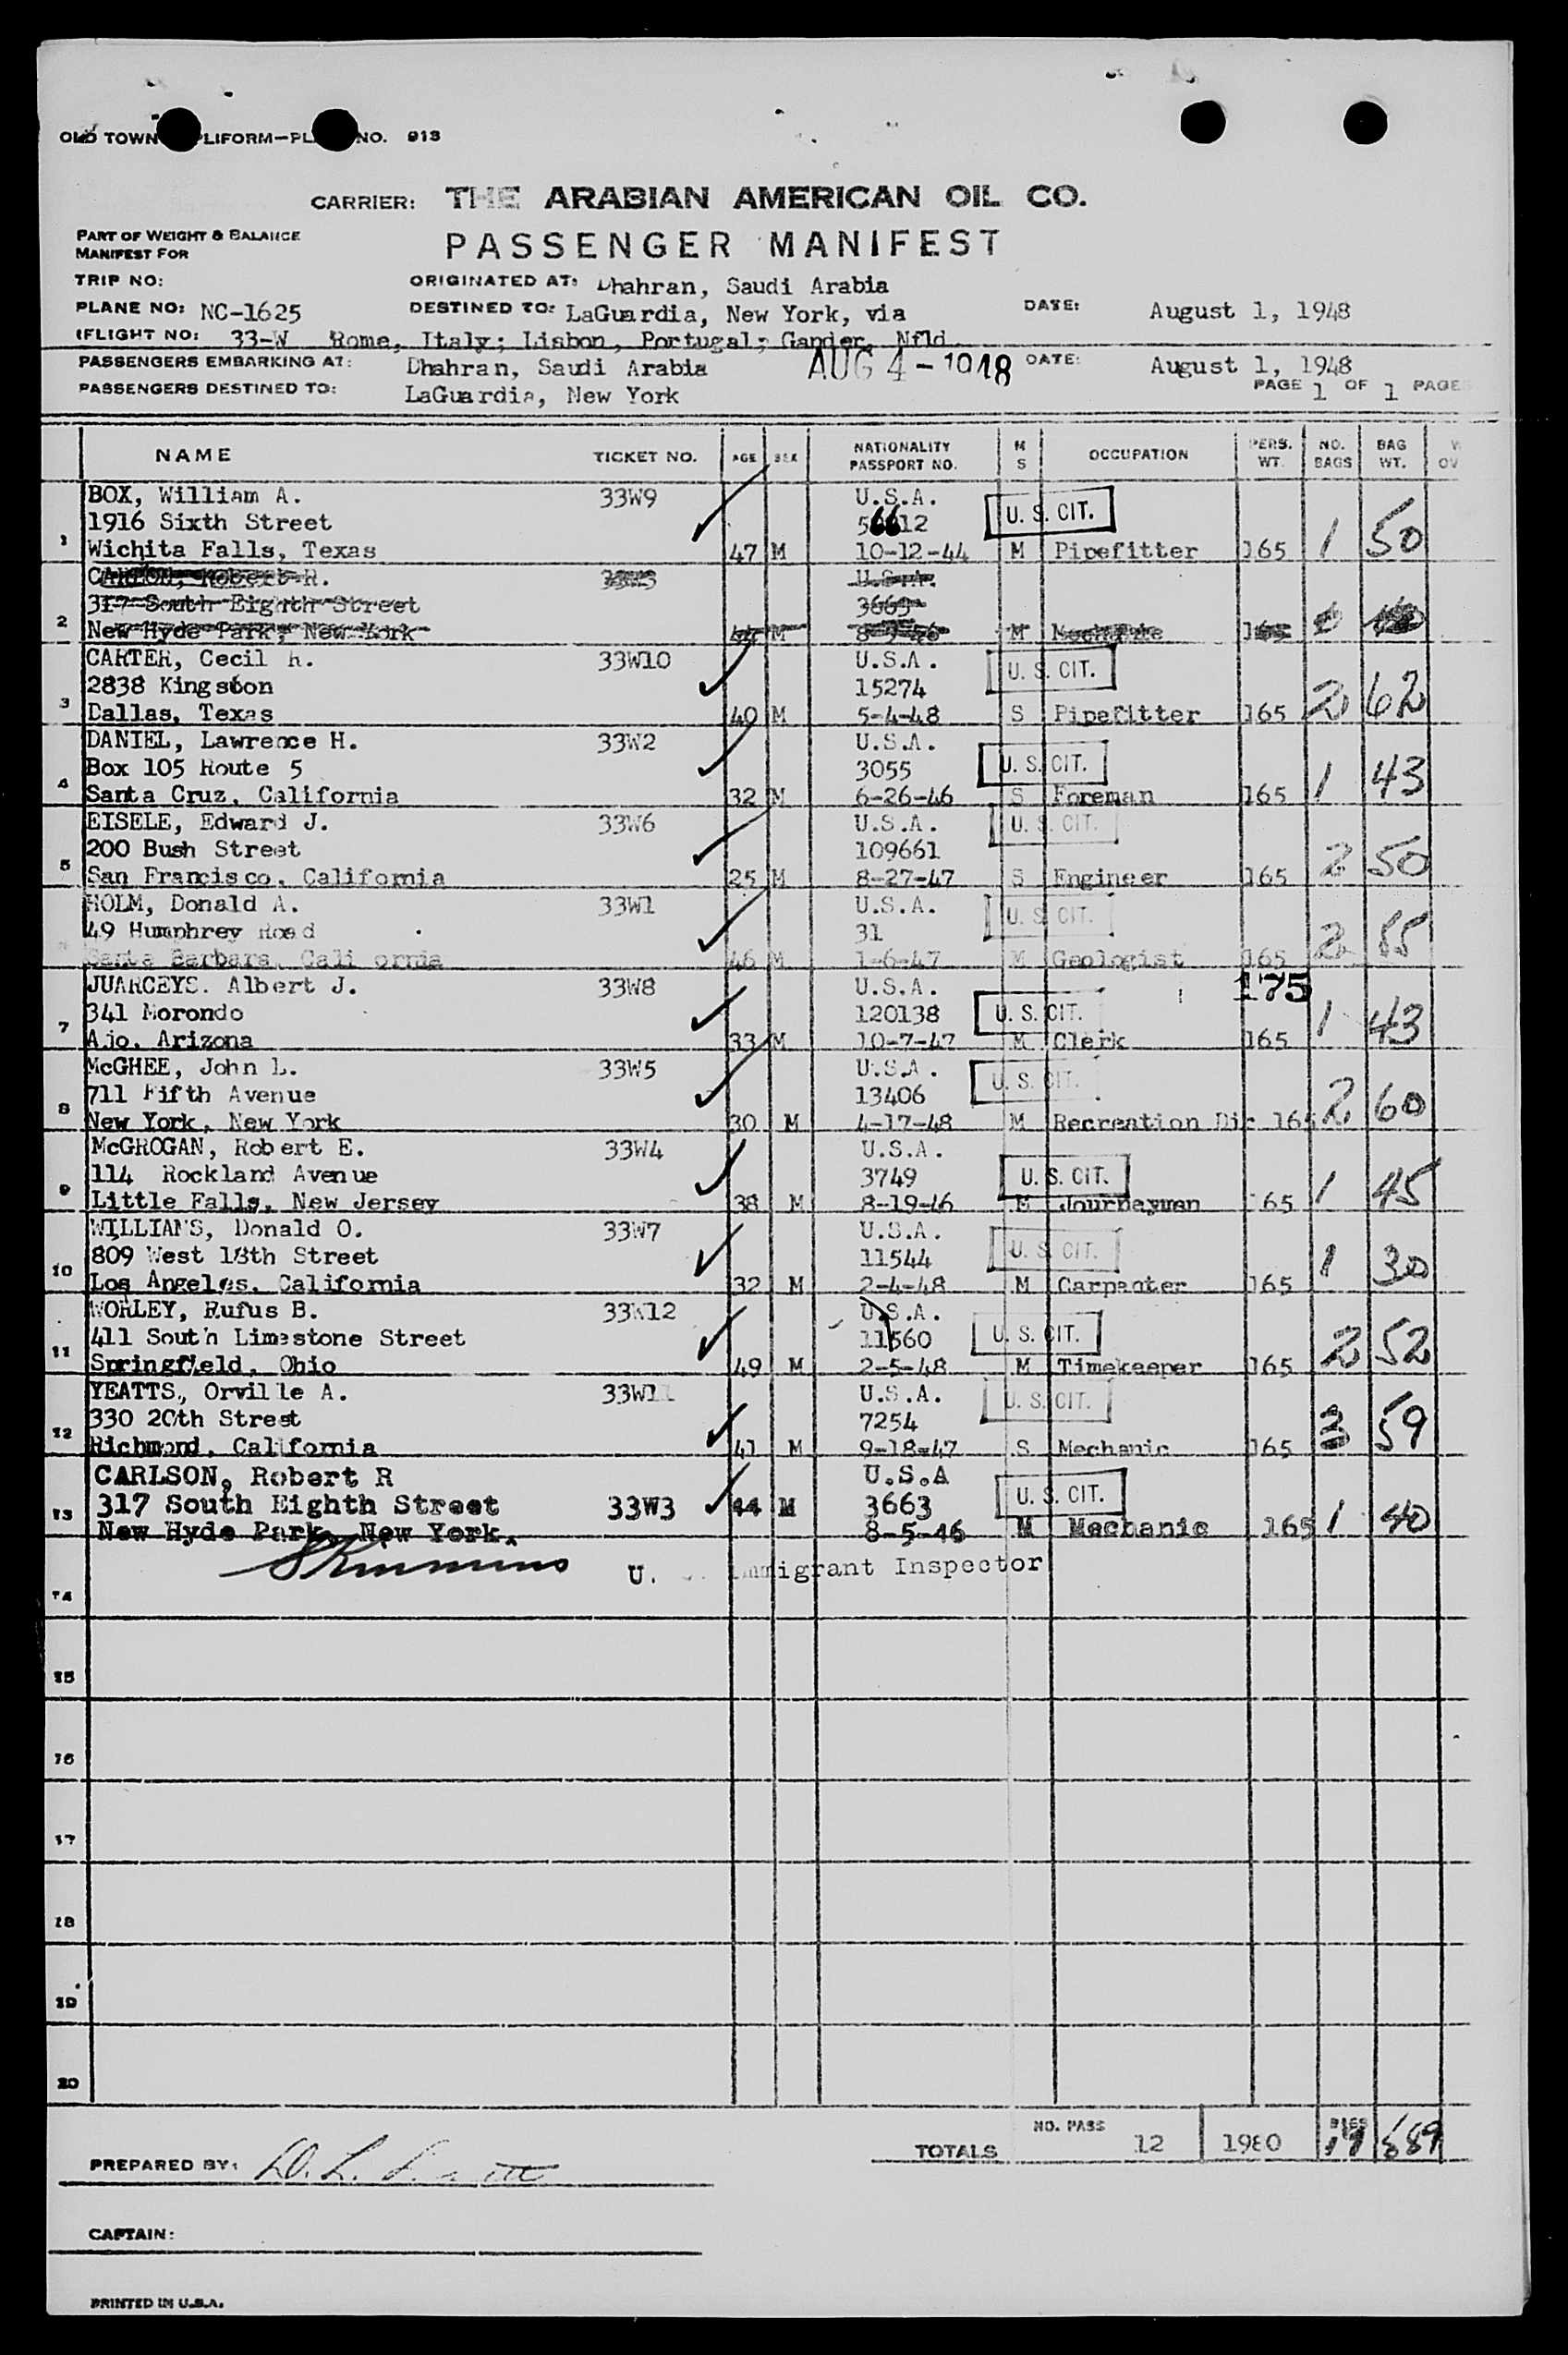 OLD TOWN LIFORM—PL NO. 913
CARRIER: THE ARABIAN AMERICAN OIL CO.
PART OF WEIGHT & BALANCE
MANIFEST FOR
PASSENGER MANIFEST
TRIP NO: ORIGINATED AT: Dhahran, Saudi Arabia
PLANE NO: NC-1625 DESTINED TO: LaGuardia, New York, via DATE: August 1, 1948
FLIGHT NO: 33-W Rome, Italy; Lisbon, Portugal; Gander, Nfld
PASSENGERS EMBARKING AT: Dhahran, Saudi Arabia AUG 4 - 1948 DATE: August 1, 1948
PASSENGERS DESTINED TO: LaGuardia, New York PAGE 1 OF 1 PAGE
NAME TICKET NO. AGE SEX NATIONALITY PASSPORT NO. M S OCCUPATION PERS. WT. NO. BAGS BAG WT. W OV
BOX, William A. 33W9 U.S.A. U. S. CIT.
1916 Sixth Street 12
1 Wichita Falls, Texas 47 M 10-12-44 M Pipefitter 165 1 50
CARLSON, Robert R. 33W3 U.S.A.
317 South Eighth Street 3663
2 New Hyde Park, New York 44 M M Mechanic 165
CARTER, Cecil R. 33W10 U.S.A. U. S. CIT.
2838 Kingston 15274
3 Dallas, Texas 40 M 5-4-48 S Pipefitter 165 2 62
DANIEL, Lawrence H. 33W2 U.S.A.
Box 105 Route 5 3055 U. S. CIT.
4 Santa Cruz, California 32 M 6-26-46 S Foreman 165 1 43
EISELE, Edward J. 33W6 U.S.A. U. S. CIT.
200 Bush Street 109661
5 San Francisco, California 25 M 8-27-47 S Engineer 165 2 50
HOLM, Donald A. 33W1 U.S.A. U. S. CIT.
49 Humphrey Road 31
Santa Barbara, California 46 M 1-6-47 M Geologist 165 2 55
JUARCEYS. Albert J. 33W8 U.S.A. 175
341 Morondo 120138 U. S. CIT.
7 Ajo, Arizona 33 M 10-7-47 M Clerk 165 1 43
McGHEE, John L. 33W5 U.S.A. U. S. CIT.
711 Fifth Avenue 13406
8 New York, New York 30 M 4-17-48 M Recreation Dir 165 2 60
McGROGAN, Robert E. 33W4 U.S.A.
114 Rockland Avenue 3749 U. S. CIT.
9 Little Falls, New Jersey 38 M 8-19-46 M Journeyman 165 1 45
WILLIAMS, Donald O. 33W7 U.S.A.
809 West 18th Street 11544 U. S. CIT.
10 Los Angeles, California 32 M 2-4-48 M Carpenter 165 1 30
WORLEY, Rufus B. 33W12 U.S.A.
411 South Limestone Street 11560 U. S. CIT.
11 Springfield, Ohio 49 M 2-5-48 M Timekeeper 165 2 52
YEATTS, Orville A. 33W11 U.S.A. U. S. CIT.
330 20th Street 7254
12 Richmond, California 41 M 9-18-47 S Mechanic 165 3 59
CARLSON, Robert R U.S.A
13 317 South Eighth Street 33W3 44 M 3663 U. S. CIT.
New Hyde Park, New York. 8-5-46 M Mechanic 165 1 40
U. S. Immigrant Inspector
14
15
16
17
18
19
20
TOTALS NO. PASS 12 1980 BAGS 19 589
PREPARED BY:
CAPTAIN:
PRINTED IN U.S.A.